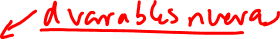 d varables nueva